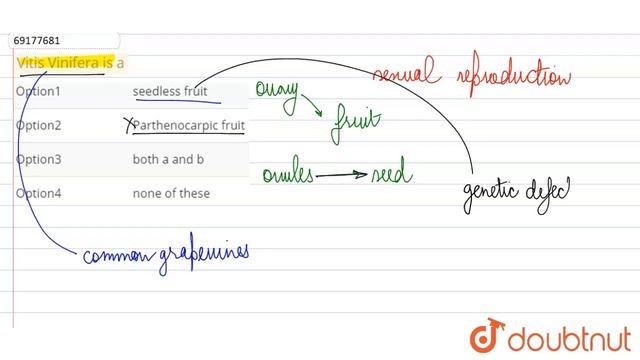 69177681
Vitis Vinifera is a
sexual reproduction
Option1 seedless fruit
ovary
Option2 X Parthenocarpic fruit
fruit
Option3 both a and b
ovules → seed
Option4 none of these
genetic defec
common grapevines
doubtnut